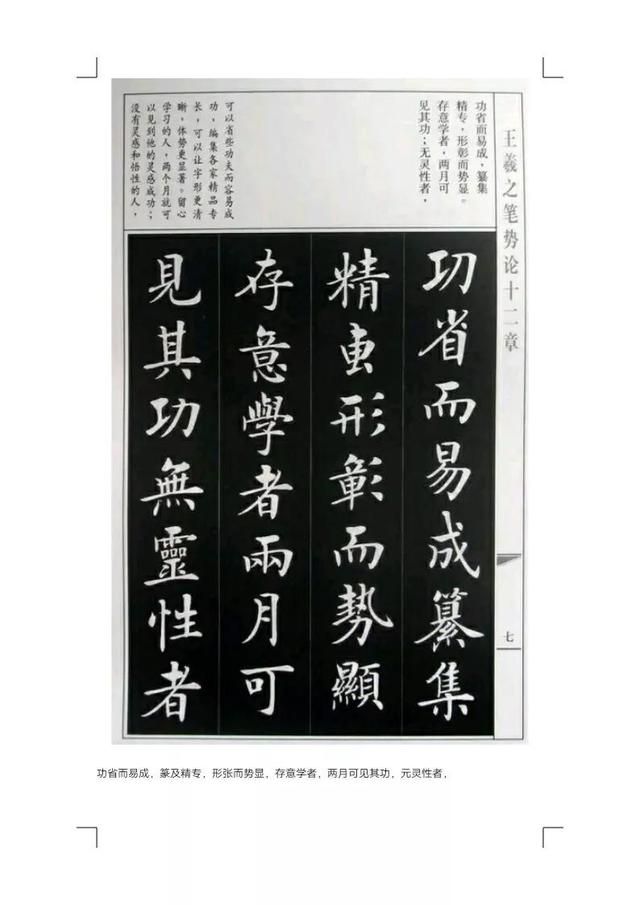 王羲之笔势论十二章
七
功省而易成，纂集
精专，形彰而势显。
存意学者，两月可
见其功；无灵性者，
可以省些功夫而容易成
功，编集各家精品专
长，可以让字形更清
晰，体势更显著。留心
学习的人，两个月就可
以见到他的灵感成功；
没有灵感和悟性的人，
功省而易成纂集
精专形彰而势顯
存意學者兩月可
見其功無靈性者
功省而易成，篆及精专，形张而势显，存意学者，两月可见其功，元灵性者，